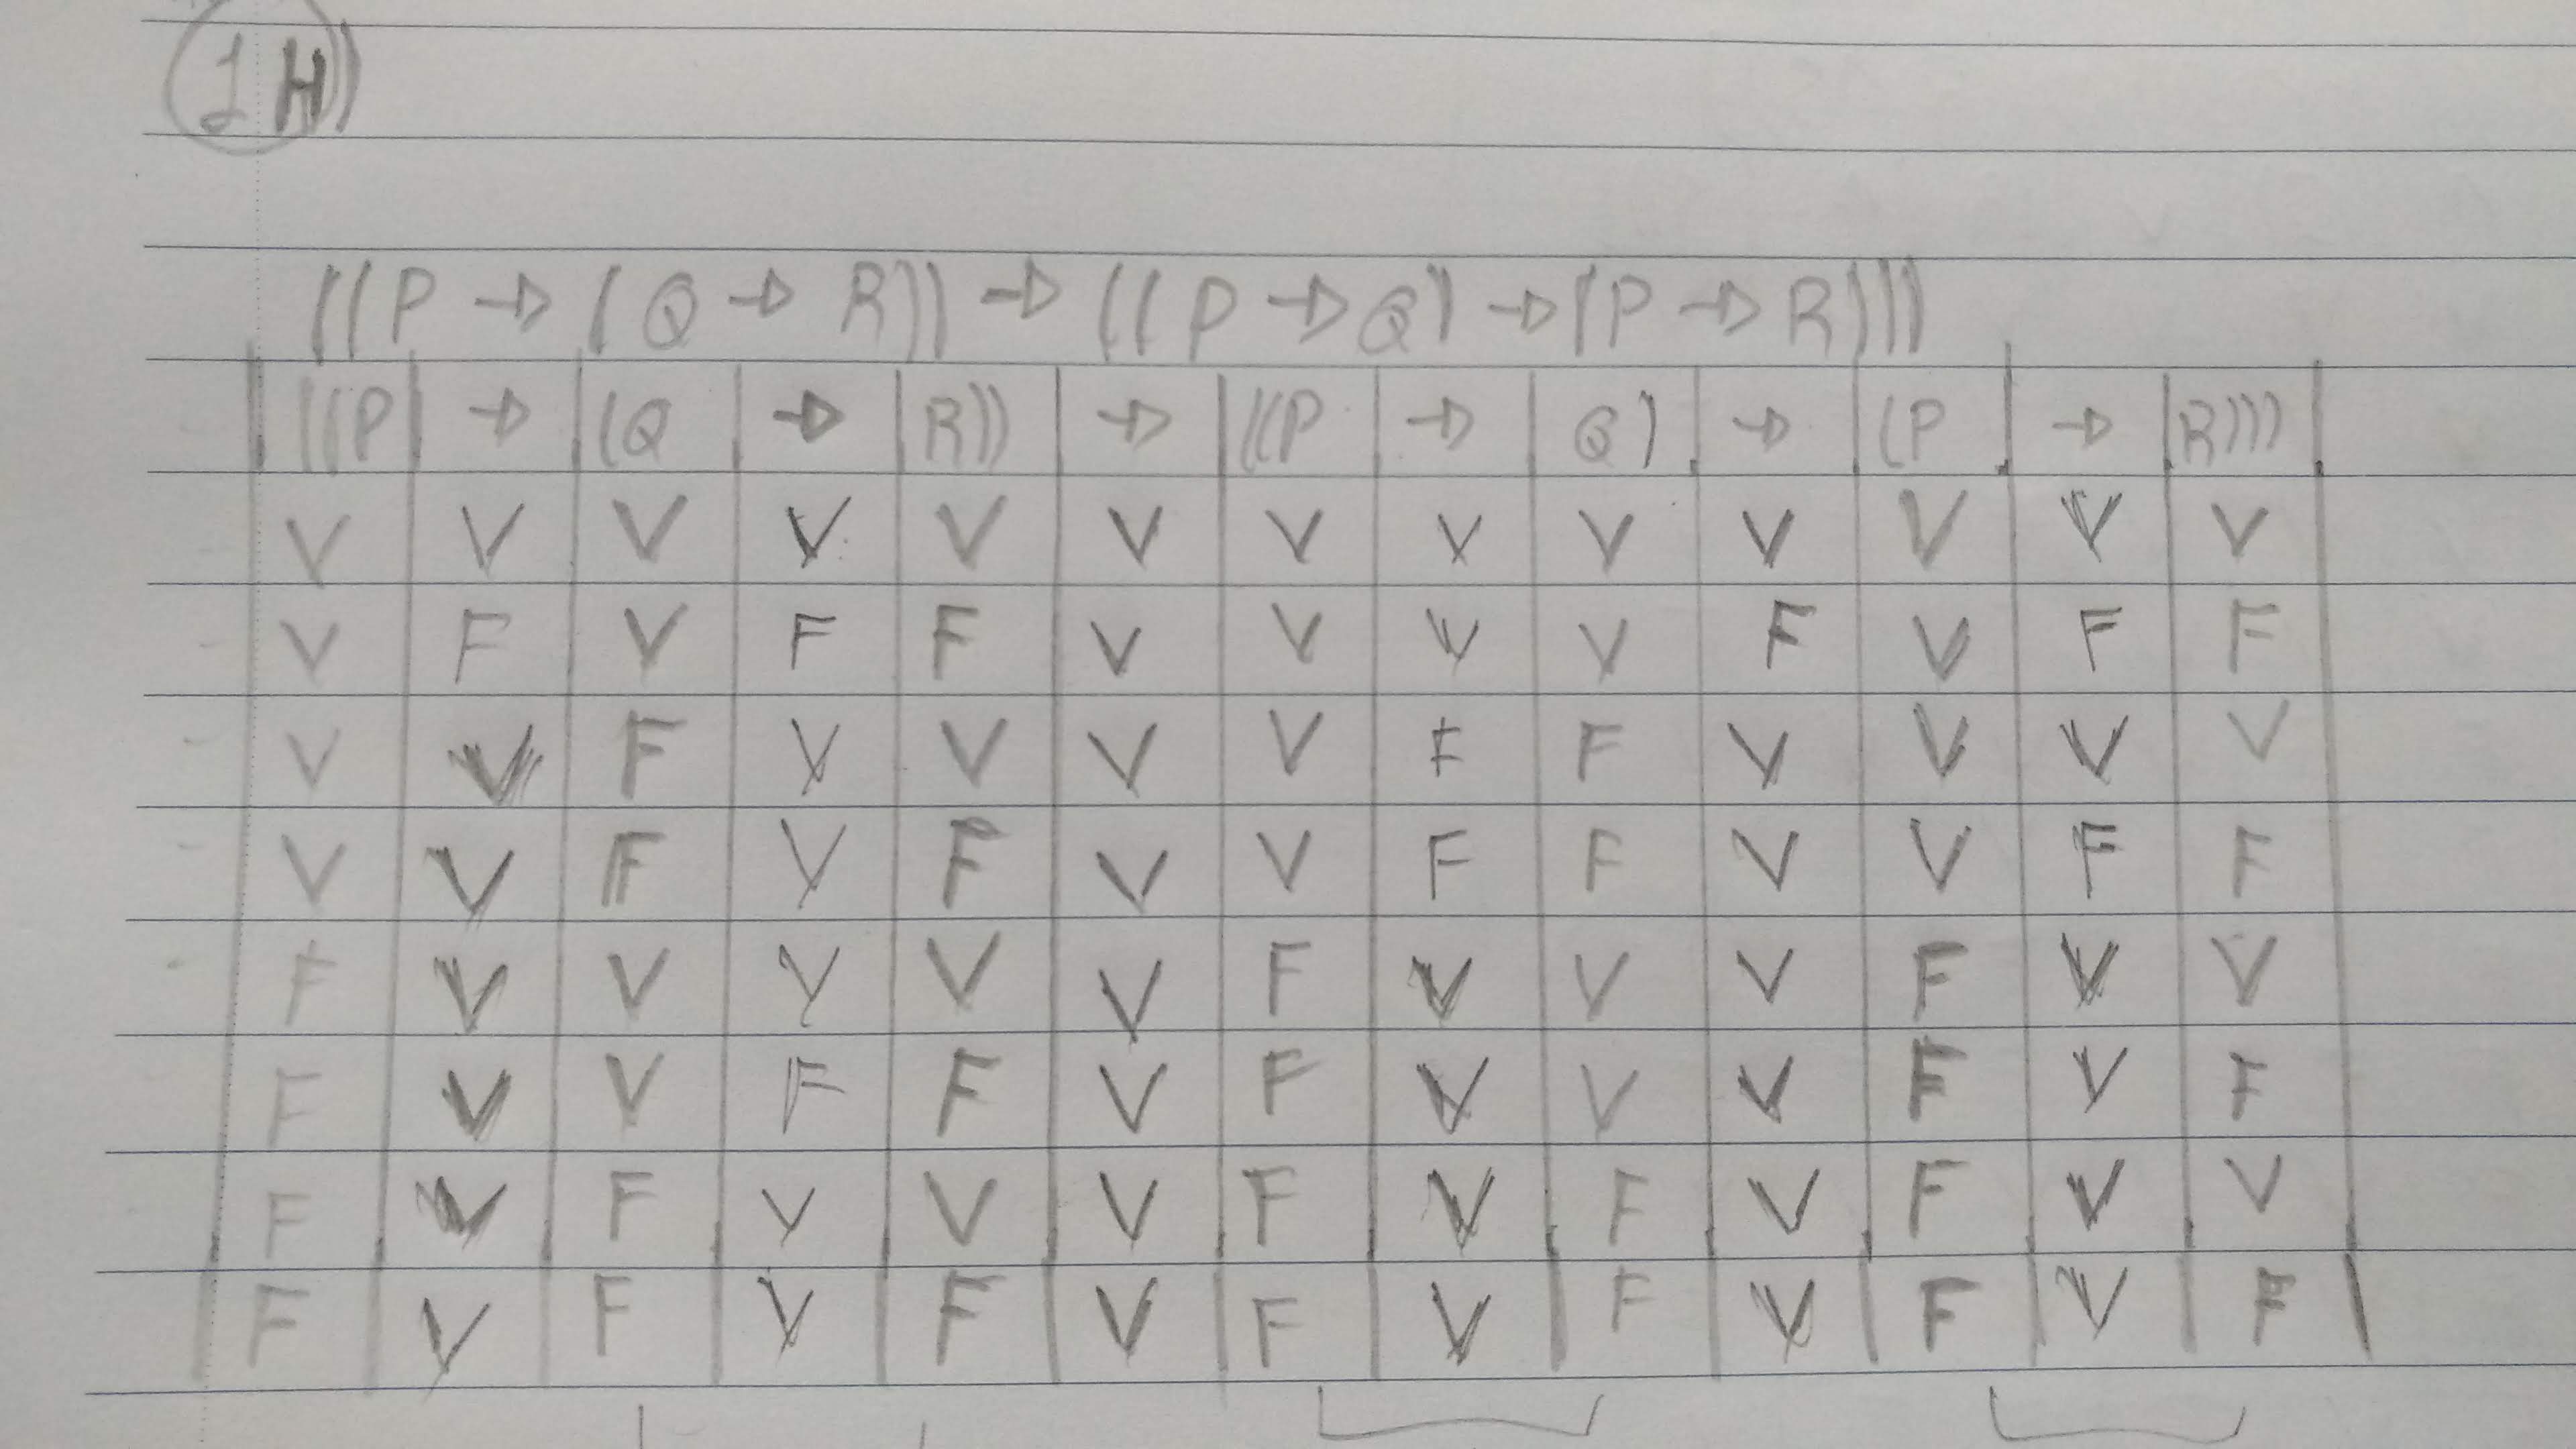 1H))
((P → (Q → R)) → ((P → Q) → (P → R)))
((P → (Q → R)) → ((P → Q) → (P → R)))
V V V V V V V V V V V V V
V F V F F V V V V F V F F
V V F V V V V F F V V V V
V V F V F V V F F V V F F
F V V V V V F V V V F V V
F V V F F V F V V V F V F
F V F V V V F V F V F V V
F V F V F V F V F V F V F